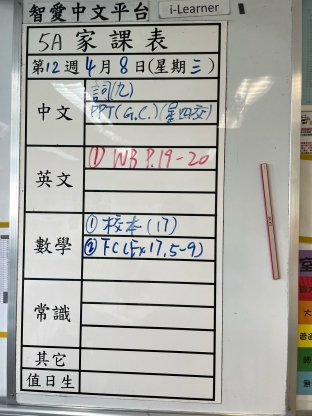 智愛中文平台
i-Learner
5A 家課表
第12週 4月8日(星期三)
中文
詞(九)
PPT(G.C.)(星四交)
英文
① WB P.19-20
數學
① 校本(17)
② FC(Ex17,5-9)
常識
其它
值日生